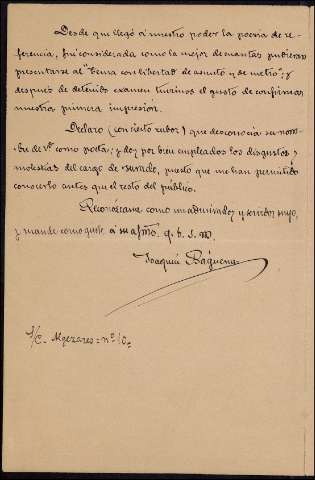 Desde que llegó á nuestro poder la poesía de re-
ferencia, fué considerada como la mejor de cuantas pudieran
presentarse al "tema con libertad de asunto y de metro"; y
después de detenido examen tuvimos el gusto de confirmar
nuestra primera impresión.
Declaro (con cierto rubor) que desconocía su nom-
bre de Vd como poeta; y doy por bien empleados los disgustos y
molestias del cargo de Jurado, puesto que me han permitido
conocerlo antes que el resto del público.
Reconózcame como un admirador y servidor suyo,
y mande como guste á su afmo. q. b. s. m.
Joaquín Báguena
S/C. Algezares = nº 10 =